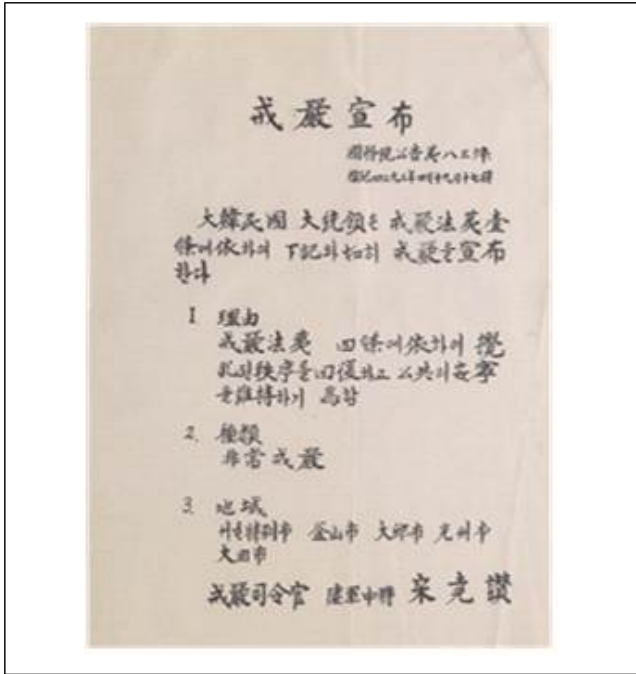 戒嚴宣布
國務院公告第八三號
檀紀四二九三年四月十九日十七時
大韓民國 大統領은 戒嚴法第壹
條에依하여 下記와如히 戒嚴을宣布
한다
1 理由
戒嚴法第 四條에依하여 攪
乱된秩序를回復하고 公共의安寧
을維持하기 爲함
2. 種類
非常戒嚴
3. 地域
서울特別市 釜山市 大邱市 光州市
大田市
戒嚴司令官 陸軍中將 宋尭讚